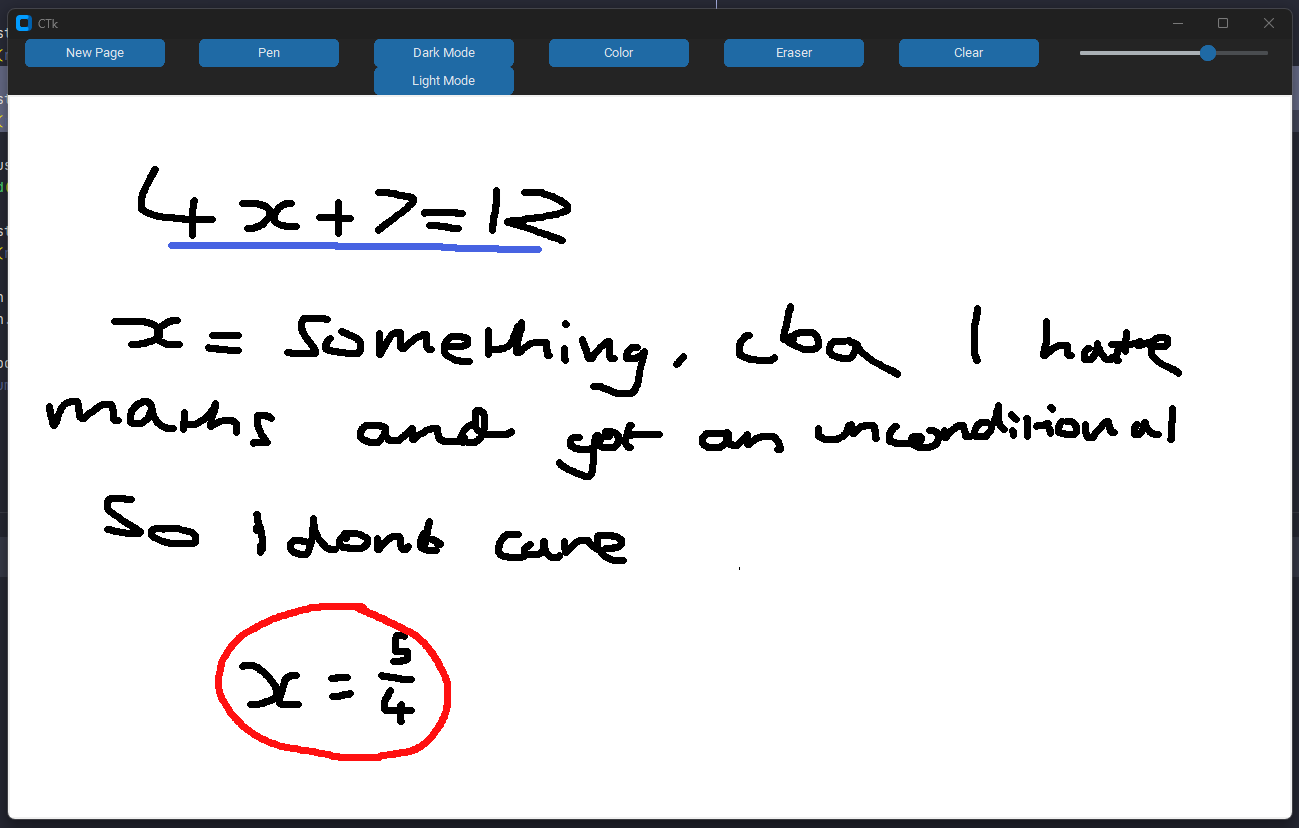 CTk
New Page Pen Dark Mode Color Eraser Clear
Light Mode
4x+7=12
x = something, cba I hate
maths and got an unconditional
so I dont care
x = 5/4